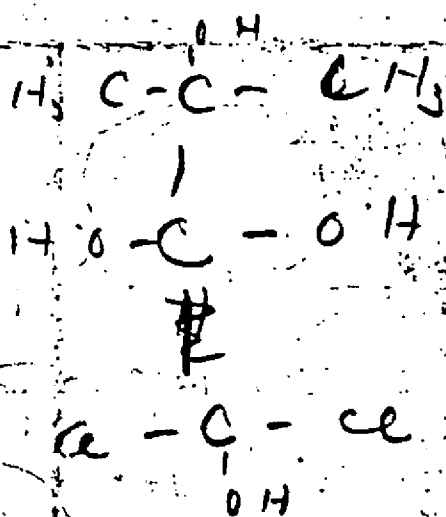 OH
H3 C-C- CH3
|
HO-C - OH
|
Cl - C - Cl
|
OH